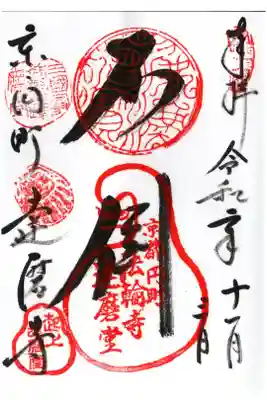 奉拝 令和二年十一月
不倒
京都円町
法輪寺
達磨堂
京円町達磨寺